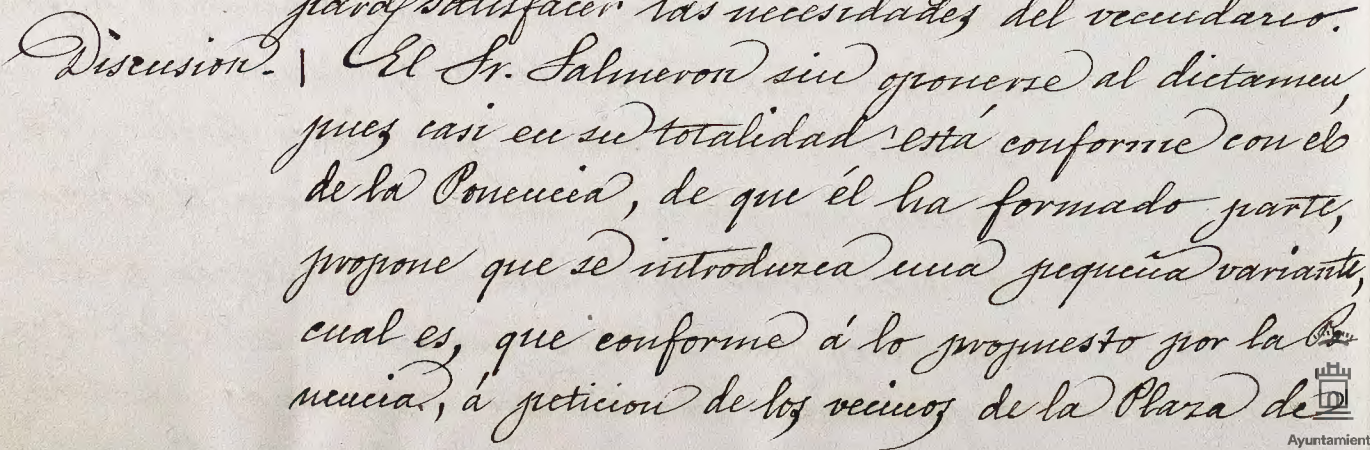 para satisfacer las necesidades del vecindario.
Discusion. | El Sr. Salmeron sin oponerse al dictamen,
pues casi en su totalidad está conforme con el
de la Ponencia, de que él ha formado parte,
propone que se introduzca una pequeña variante,
cual es, que conforme á lo propuesto por la Po-
nencia, á peticion de los vecinos de la Plaza de
Ayuntamient